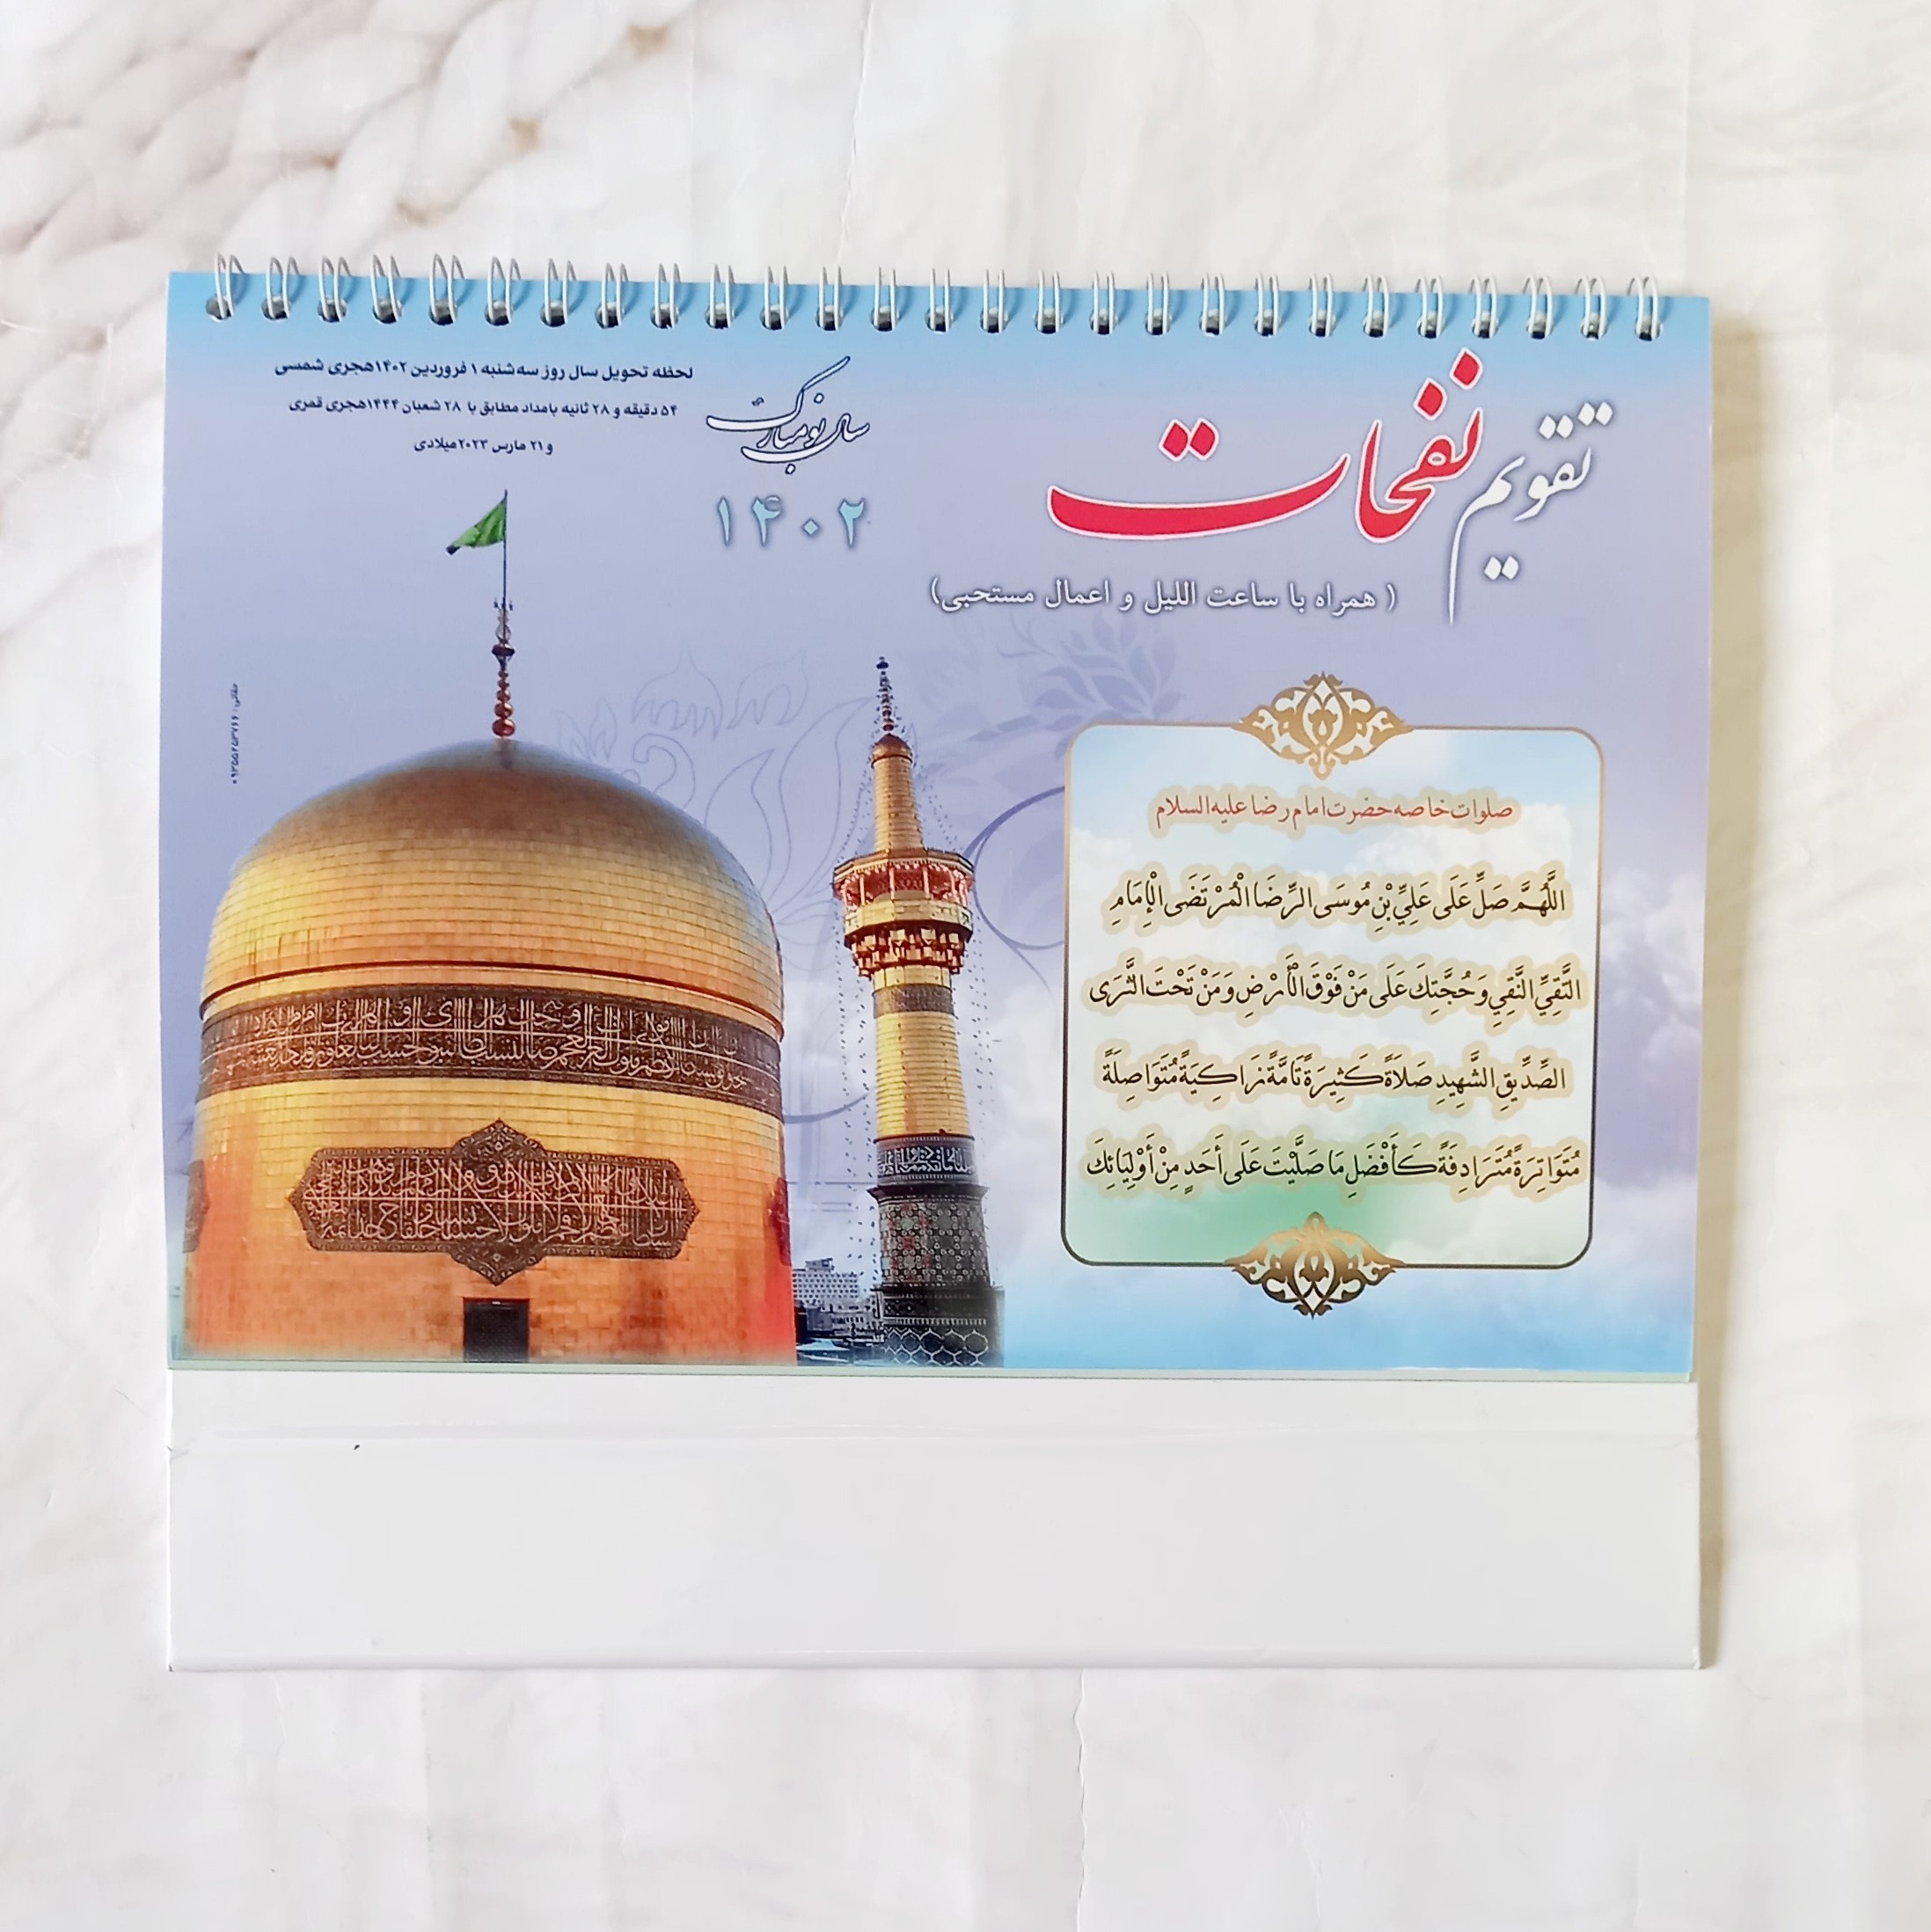 تقویم نفحات
( همراه با ساعت اللیل و اعمال مستحبی)
سال نو مبارک
۱۴۰۲
لحظه تحویل سال روز سه‌شنبه ۱ فروردین ۱۴۰۲هجری شمسی
۵۴ دقیقه و ۲۸ ثانیه بامداد مطابق با ۲۸ شعبان ۱۴۴۴هجری قمری
و ۲۱ مارس ۲۰۲۳میلادی
صلوات خاصه حضرت امام رضا علیه السلام
اللَّهُمَّ صَلِّ عَلَى عَلِيِّ بْنِ مُوسَى الرِّضَا الْمُرْتَضَى الْإِمَامِ
التَّقِيِّ النَّقِيِ وَ حُجَّتِكَ عَلَى مَنْ فَوْقَ الْأَرْضِ وَ مَنْ تَحْتَ الثَّرَى
الصِّدِّيقِ الشَّهِيدِ صَلَاةً كَثِيرَةً تَامَّةً زَاكِيَةً مُتَوَاصِلَةً
مُتَوَاتِرَةً مُتَرَادِفَةً كَأَفْضَلِ مَا صَلَّيْتَ عَلَى أَحَدٍ مِنْ أَوْلِيَائِكَ